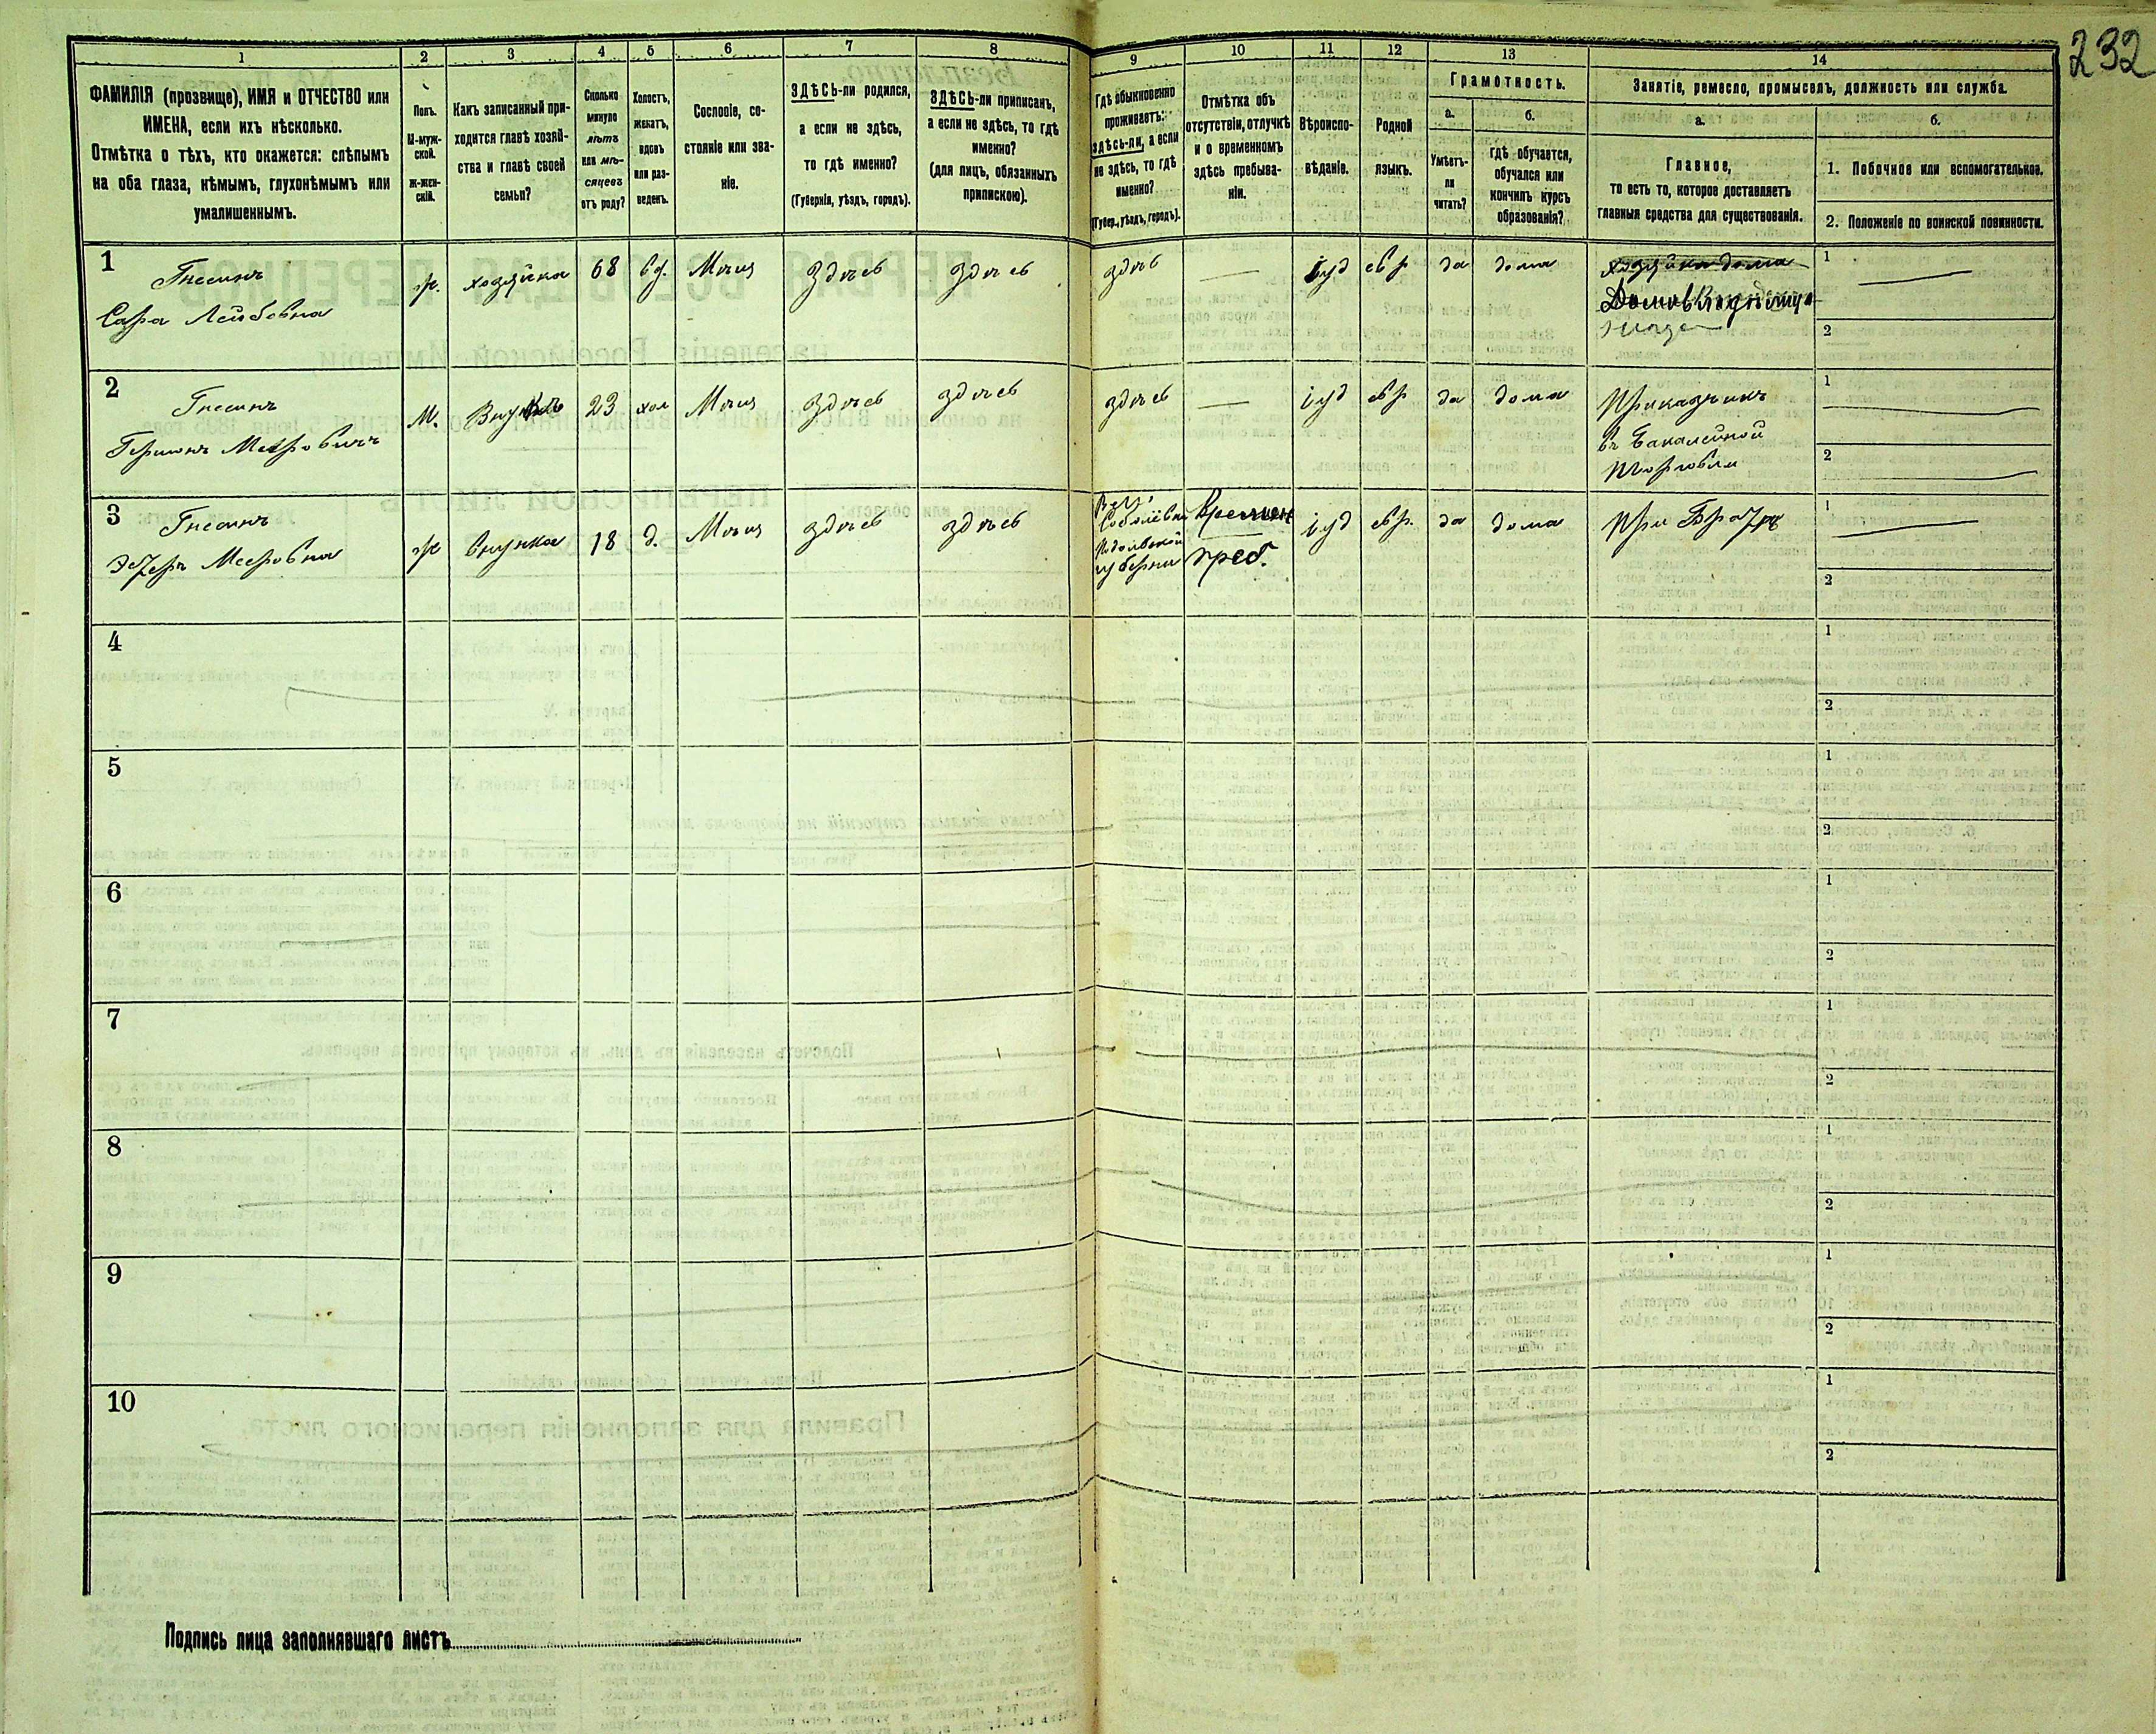 232
1 2 3 4 5 6 7 8 9 10 11 12 13 14
ФАМИЛІЯ (прозвище), ИМЯ и ОТЧЕСТВО или
ИМЕНА, если ихъ нѣсколько.
Отмѣтка о тѣхъ, кто окажется: слѣпымъ
на оба глаза, нѣмымъ, глухонѣмымъ или
умалишеннымъ.
Полъ.
М-муж-
ской.
ж-жен-
скій.
Какъ записанный при-
ходится главѣ хозяй-
ства и главѣ своей
семьи?
Сколько
минуло
лѣтъ
или мѣ-
сяцевъ
отъ роду?
Холостъ,
женатъ,
вдовъ
или раз-
веденъ.
Сословіе, со-
стояніе или зва-
ніе.
ЗДѢСЬ-ли родился,
а если не здѣсь,
то гдѣ именно?
(Губернія, уѣздъ, городъ).
ЗДѢСЬ-ли приписанъ,
а если не здѣсь, то гдѣ
именно?
(для лицъ, обязанныхъ
припискою).
Гдѣ обыкновенно
проживаетъ:
здѣсь-ли, а если
не здѣсь, то гдѣ
именно?
(Губер., уѣздъ, городъ).
Отмѣтка объ
отсутствіи, отлучкѣ
и о временномъ
здѣсь пребыва-
ніи.
Вѣроиспо-
вѣданіе.
Родной
языкъ.
Грамотность.
а.
Умѣетъ-
ли
читать?
б.
гдѣ обучается,
обучался или
кончилъ курсъ
образованія?
Занятіе, ремесло, промыселъ, должность или служба.
а.
Главное,
то есть то, которое доставляетъ
главныя средства для существованія.
б.
1. Побочное или вспомогательное.
2. Положеніе по воинской повинности.
1
Гнесинъ
Сара Лейбовна
ж. хозяйка 68 вд. Мѣщ здѣсь здѣсь здѣсь — іуд евр да дома
хозяйка дома
Домовладѣлица
1 —
2
2
Гнесинъ
Гершонъ Мееровичъ
М. Внукъ 23 хол Мѣщ здѣсь здѣсь здѣсь — іуд евр да дома
Приказчикъ
въ бакалейной
торговли
1 —
2 —
3
Гнесинъ
Эстеръ Мееровна
ж внучка 18 д. Мѣщ здѣсь здѣсь
Подольской
губерніи
Времен
преб.
іуд евр. да дома
При Братѣ
1 —
2
4
1
2
5
1
2
6
1
2
7
1
2
8
1
2
9
1
2
10
1
2
Подпись лица заполнявшаго листъ